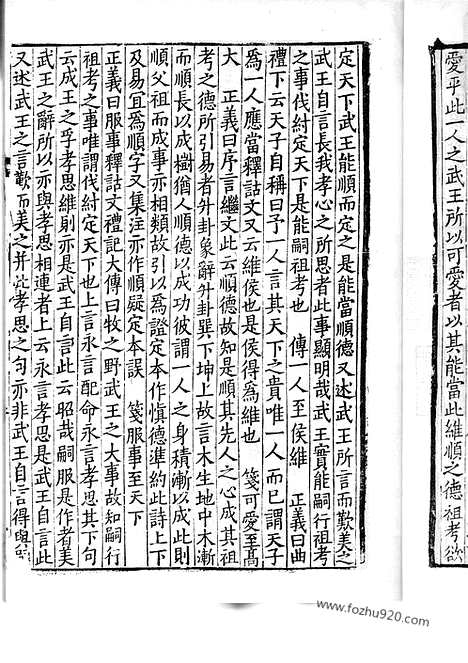 愛乎此一人之武王所以可愛者以其能當此維順之德祖考欲
定天下武王能順而定之是能當順德又述武王所言而歎美之
武王自言長我孝心之所思者此事顯明哉武王實能嗣行祖考
之事伐紂定天下是能嗣祖考也　傳一人至侯維　正義曰曲
禮下云天子自稱曰予一人言其天下之貴唯一人而已謂天子
為一人應當釋詁文又云維侯也是侯得為維也　箋可愛至高
大　正義曰序言繼文此云順德故知是順其先人之心成其祖
考之德所引易者升卦象辭升卦巽下坤上故言木生地中木漸
而順長以成樹猶人順德以成功彼謂一人之身積漸以成此則
順父祖而成事亦相類故引以為證定本作慎德準約此詩上下
及易宜為順字又集注亦作順疑定本誤　箋服事至天下
正義曰服事釋詁文禮記大傳曰牧之野武王之大事故知嗣行
祖考之事唯謂伐紂定天下也上言永言配命永言孝思其下句
云成王之孚孝思維則亦是武王自言此云昭哉嗣服是作者美
武王之辭所以亦與孝思相連者上云永言孝思是武王自言此
又述武王之言歎而美之并此孝思之句亦非武王自言得與
www.fozhu920.com